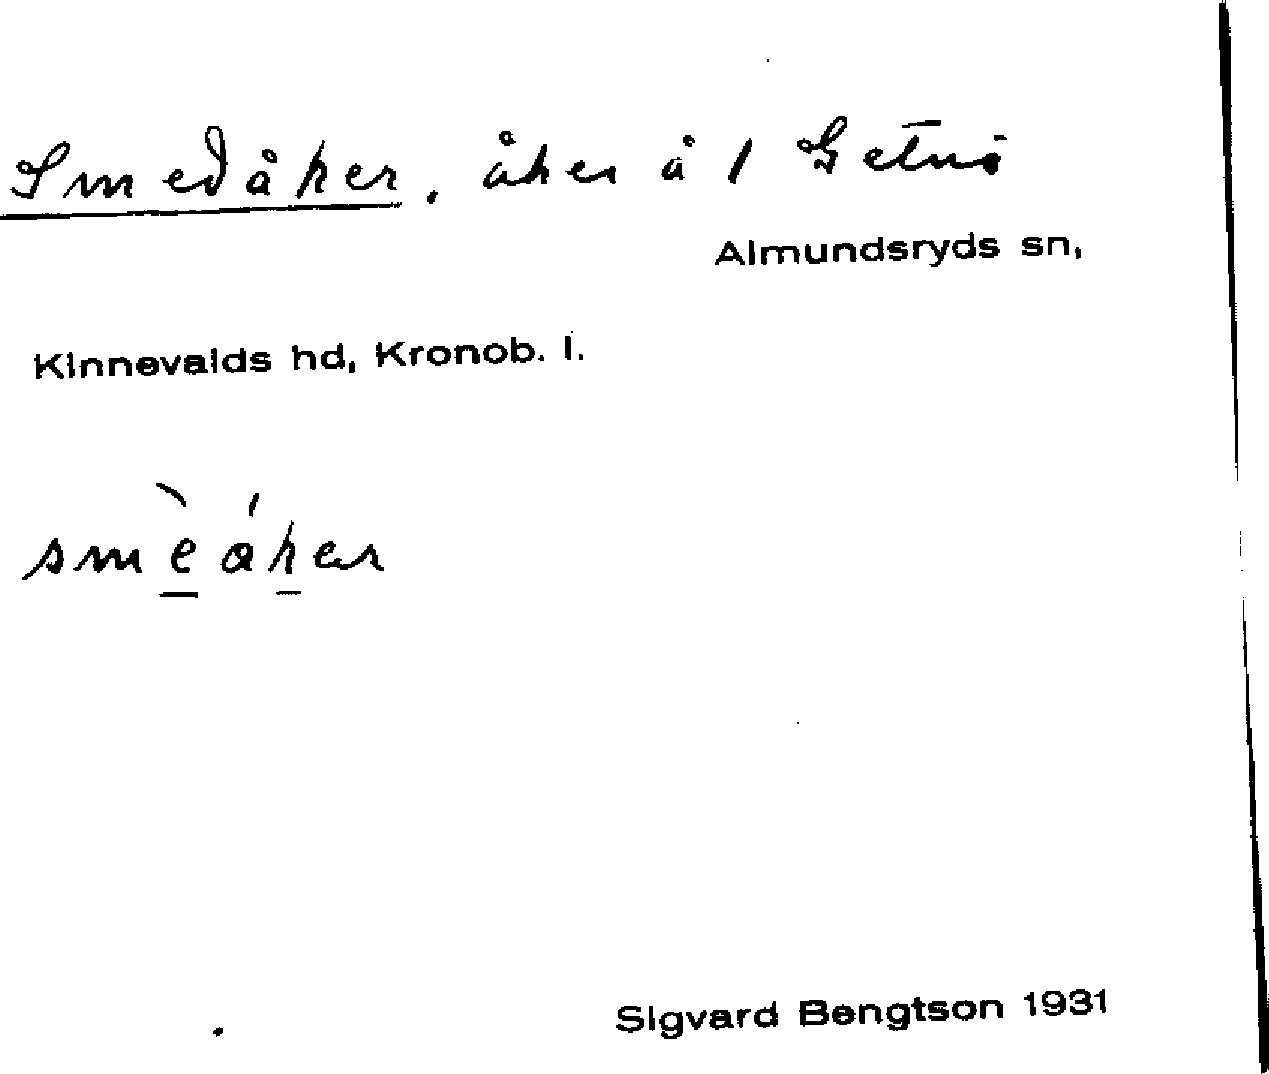 Smedåker, åker å 1 Getnö
Almundsryds sn,
Kinnevalds hd, Kronob. l.
smèáker
Sigvard Bengtson 1931